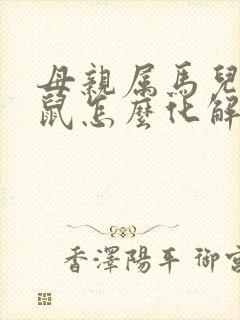 母親属馬兒
鼠怎麼化解
香澤陽平 御宮